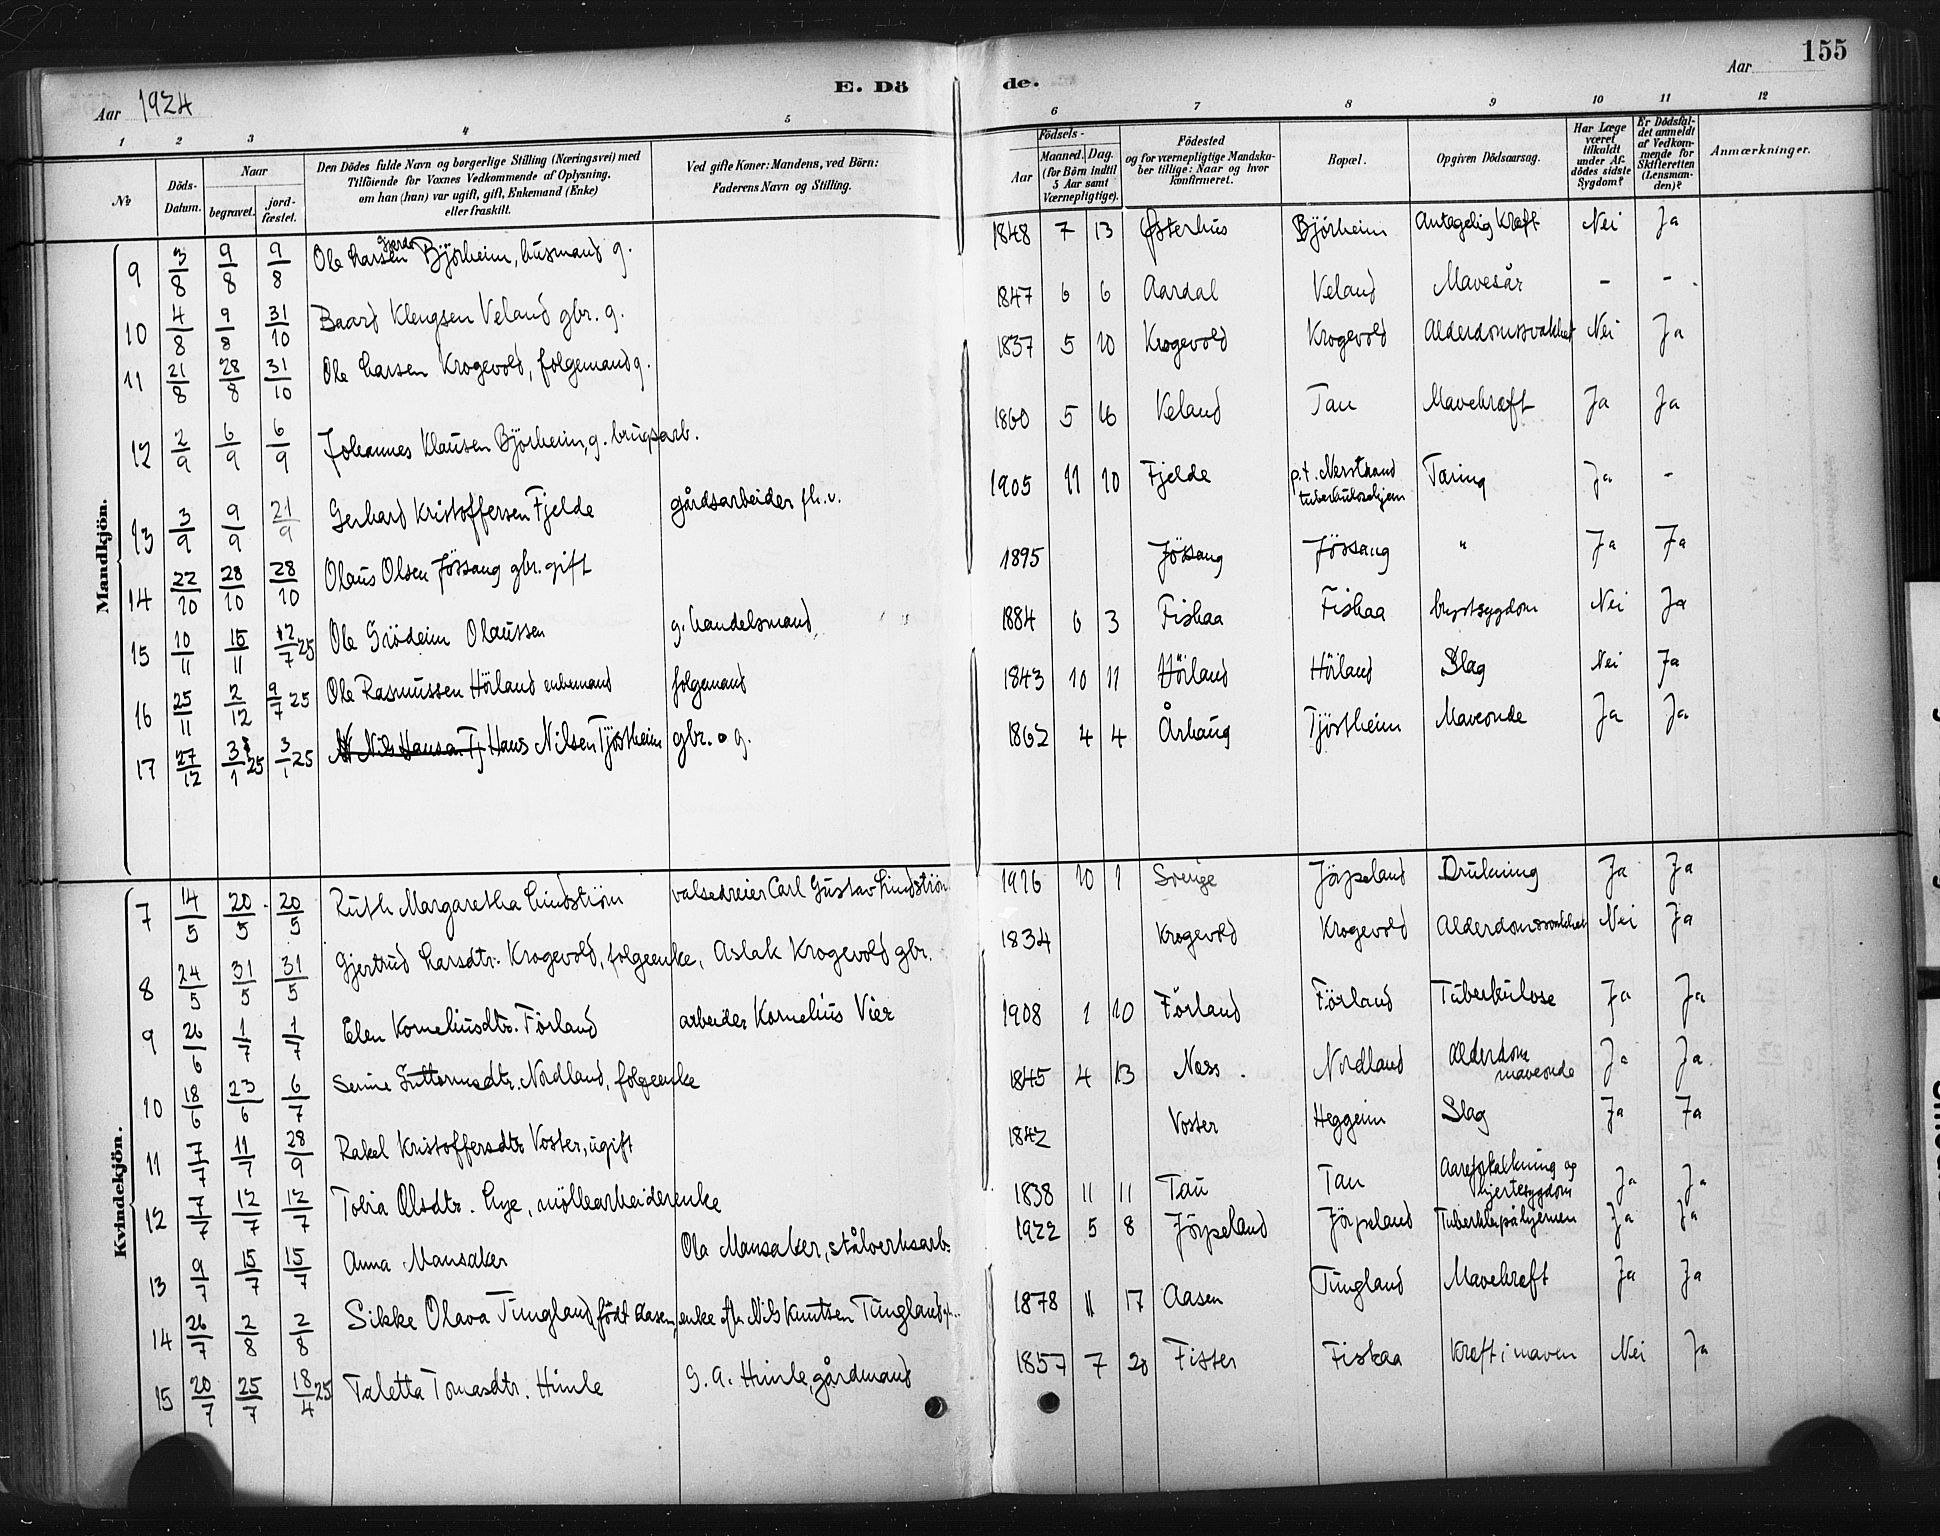 155
E. Döde.
Aar 1924
Aar
1 2 3 4 5 6 7 8 9 10 11 12
№
Döds-Datum.
Naar
begravet.
jord-fæstet.
Den Dödes fulde Navn og borgerlige Stilling (Næringsvei) med
Tilföiende for Voxnes Vedkommende af Oplysning.
om han (hun) var ugift, gift, Enkemand (Enke)
eller fraskilt.
Ved gifte Koner: Mandens, ved Börn:
Faderens Navn og Stilling.
Födsels-
Aar
Maaned. Dag.
(for Börn indtil
5 Aar samt
Værnepligtige).
Födested
og for værnepligtige Mandska-
ber tillige: Naar og hvor
konfirmeret.
Bopæl.
Opgiven Dödsaarsag.
Har Læge
været
tilkaldt
under Af-
dödes sidste
Sygdom?
Er Dödsfal-
det anmeldt
af Vedkom-
mende for
Skifteretten
(Lensman-
den)?
Anmærkninger.
Mandkjön.
9 3/8 9/8 9/8 Ole Larsen Gjerde Björheim, husmand g. 1848 7 13 Østerhus Björheim Antagelig Kræft Nei Ja
10 4/8 9/8 31/10 Baard Klengsen Veland gbr. g. 1847 6 6 Aardal Veland Mavesår - -
11 21/8 28/8 31/10 Ole Larsen Krogevold, folgemand g. 1837 5 10 Krogevold Krogevold Alderdomssvakhet Nei Ja
12 2/9 6/9 6/9 Johannes Klausen Björheim, g. brugsarb. 1860 5 16 Veland Tau Mavekræft Ja Ja
13 3/9 9/9 21/9 Gerhard Kristoffersen Fjelde gårdsarbeider fh.v. 1905 11 10 Fjelde p.t. Nerstrand tuberkulosehjem Tæring Ja -
14 22/10 28/10 28/10 Olaus Olsen Jössang gbr. gift 1895 Jössang Jössang " Ja Ja
15 10/11 15/11 12/7 25 Ole Grödeim Olaussen g. handelsmand 1884 6 3 Fiskaa Fiskaa brystsygdom Nei Ja
16 25/11 2/12 9/7 25 Ole Rasmussen Hörland enkemand folgemand 1843 10 11 Hörland Hörland Slag Nei Ja
17 27/12 3/1 25 3/1 25 Nils Hansen Tj Hans Nilsen Tjöstheim gbr. g. 1862 4 4 Århaug Tjöstheim Maveonde Ja Ja
Kvindekjön.
7 14/5 20/5 20/5 Ruth Margaretha Lindström valsedreier Carl Gustav Lindström 1916 10 1 Sverige Jörpeland Drukning Ja Ja
8 24/5 31/5 31/5 Gjertrud Larsdtr. Krogevold, folgeenke, Aslak Krogevold gbr. 1834 Krogevold Krogevold Alderdomssvakhet Nei Ja
9 26/6 1/7 1/7 Elen Korneliusdtr. Förland arbeider Kornelius Vier 1908 1 10 Förland Förland Tuberkulose Ja Ja
10 18/6 23/6 6/7 Serine Guttormsdtr. Nordland, folgeenke 1845 4 13 Næss Nordland Alderdom maveonde Ja Ja
11 7/7 11/7 28/9 Rakel Kristoffersdtr Voster, ugift 1842 Voster Heggeim Slag Ja Ja
12 7/7 12/7 12/7 Tobia Olsdtr. Lye, möllearbeiderenke 1838 11 11 Tau Tau Aareforkalkning og hjertesygdom Ja Ja
13 9/7 15/7 15/7 Anna Mansaker Ola Mansaker, stålverksarb. 1922 5 8 Jörpeland Jörpeland Tuberkler på hjernen Ja Ja
14 26/7 2/8 2/8 Sikke Olava Tungland, födt Aasen, enke eft. Nils Knutsen Tungland 1878 11 17 Aasen Tungland Mavekreft Ja Ja
15 20/7 25/7 18/4 25 Taletta Tomasdtr. Himle G. A. Himle, gårdmand 1857 7 20 Fister Fiskaa Kreft i maven Nei Ja